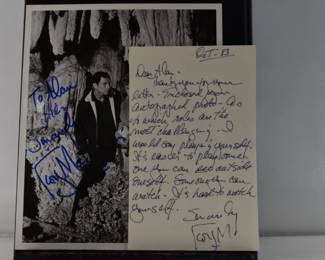 To Alan
Oct. 83
Dear Alan -
Thank you for your
letter - Enclosed is your
autographed photo - As
to which roles are the
most challenging - I
would say playing yourself.
It's easier to play someone
one then can see outside
oneself. Someone then can
watch - It's hard to watch
yourself.
Sincerely
Tony